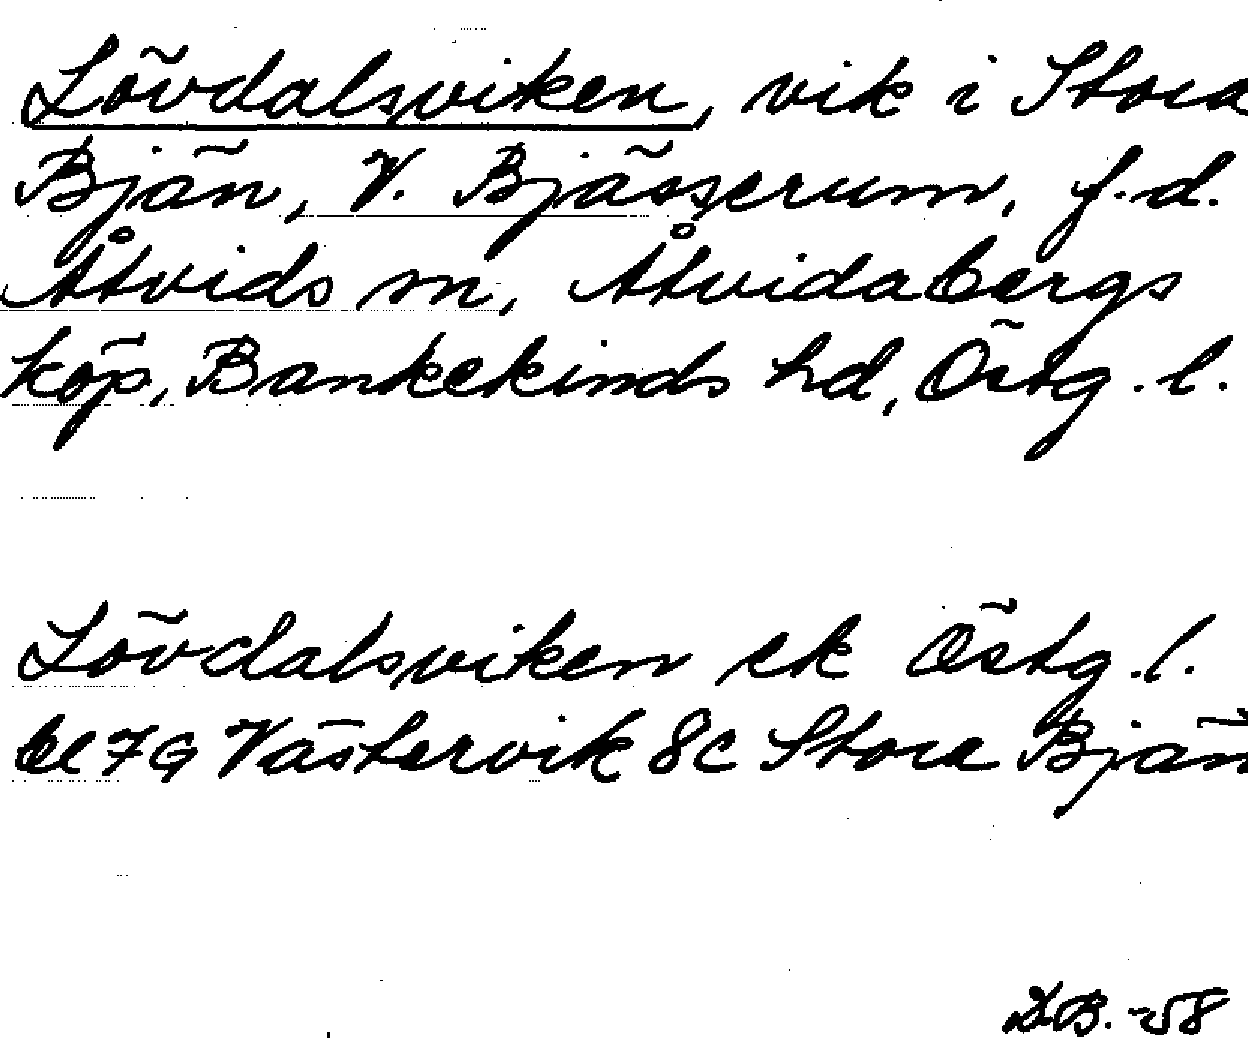 Lövdalsviken, vik i Stora
Bjän, V. Bjässerum, f.d.
Åtvids sn, Åtvidabergs
köp, Bankekinds hd, Östg.l.
Lövdalsviken ek Östg.l.
bl 7G Västervik 8c Stora Bjän
D.B. -58